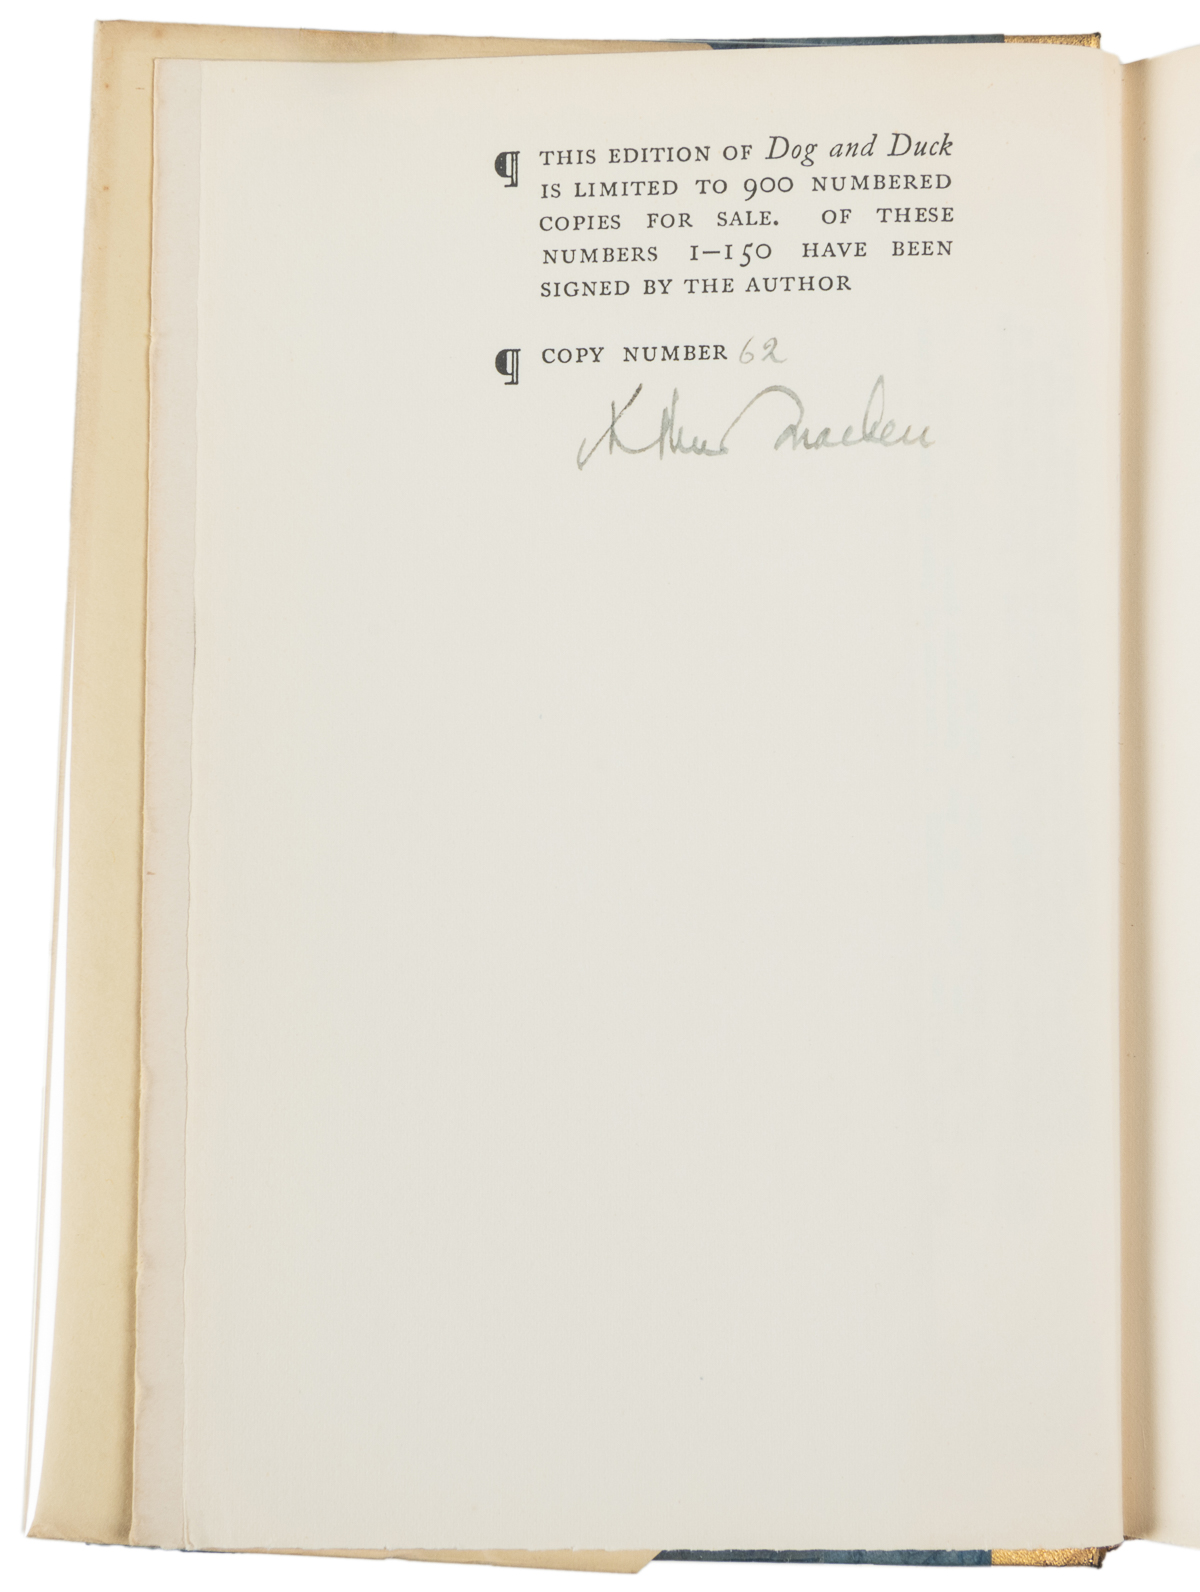 ¶ THIS EDITION OF Dog and Duck
IS LIMITED TO 900 NUMBERED
COPIES FOR SALE. OF THESE
NUMBERS 1–150 HAVE BEEN
SIGNED BY THE AUTHOR
¶ COPY NUMBER 62
Arthur Machen